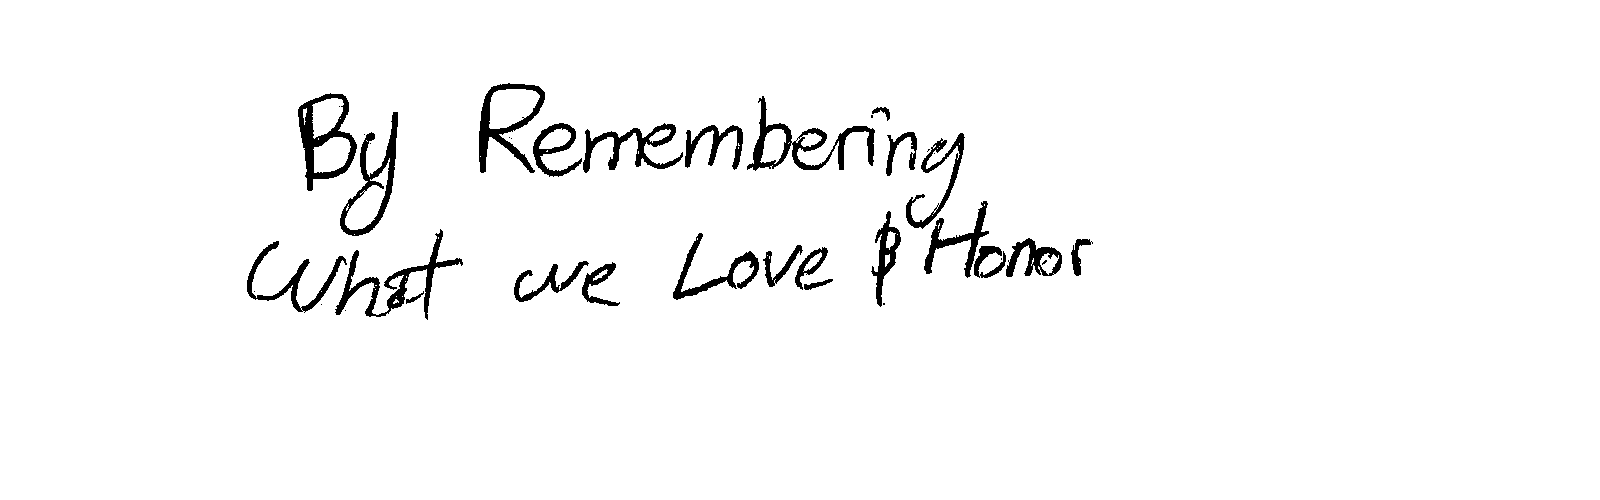 By Remembering
What we Love & Honor